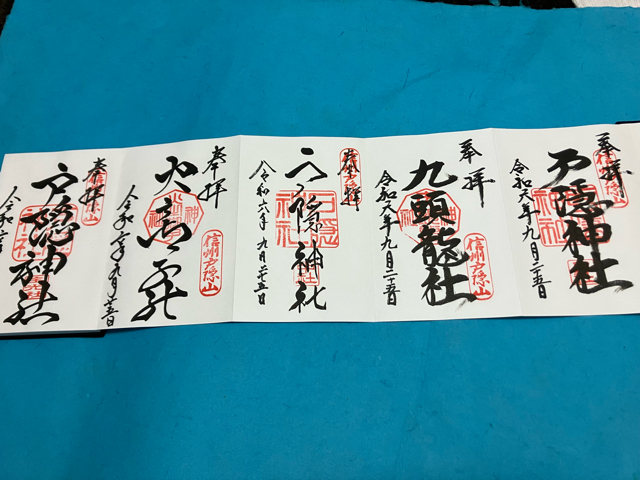 奉拝
戸隠神社
令和六年九月二十五日
奉拝
九頭龍社
信州戸隠山
令和六年九月二十五日
奉拝
戸隠神社
令和六年九月二十五日
奉拝
火之御子社
信州戸隠山
令和六年九月二十五日
奉拝
戸隠神社
令和六年